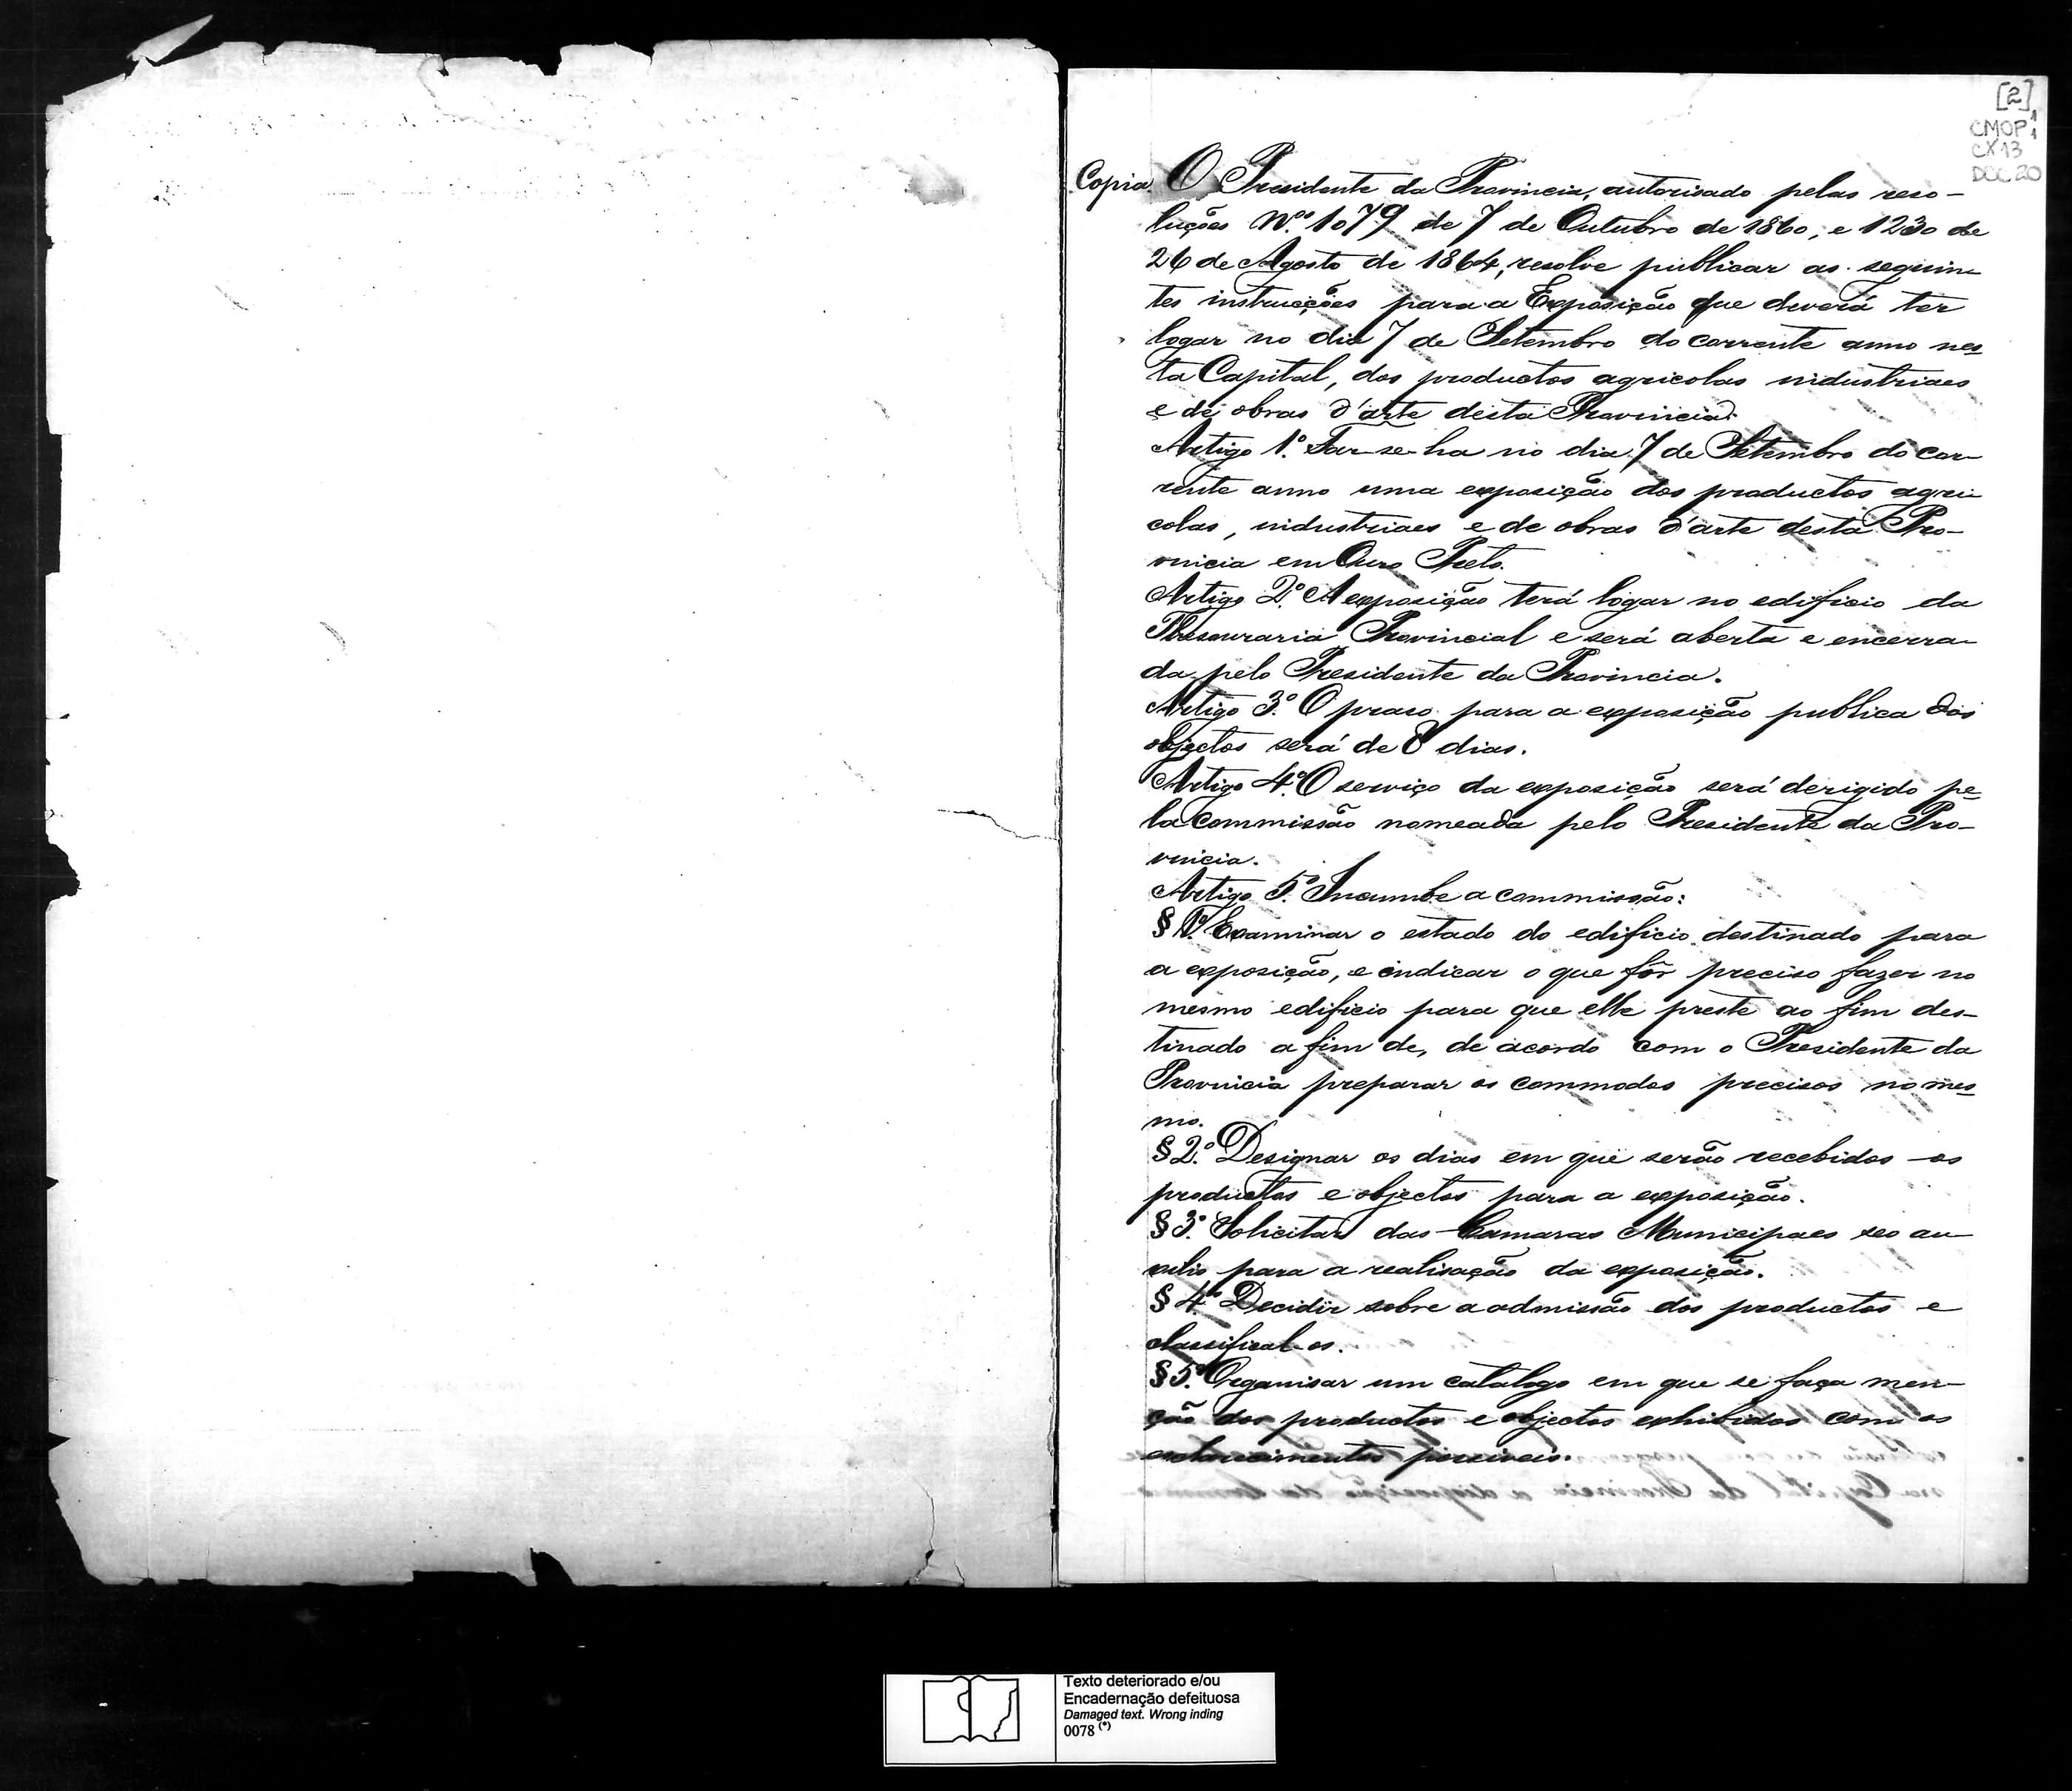 [2]
CMOP 1
CX 13
DOC. 20
Copia. O Presidente da Provincia, autorisado pelas reso-
luções Nos. 1079 de 7 de Outubro de 1860, e 1230 de
26 de Agosto de 1864, resolve publicar as seguin-
tes instrucções para a Exposição que deverá ter
logar no dia 7 de Setembro do corrente anno nes-
ta Capital, dos productos agricolas industriaes
e de obras d'arte desta Provincia:
Artigo 1º. Far-se-ha no dia 7 de Setembro do cor-
rente anno uma exposição dos productos agri-
colas, industriaes e de obras d'arte desta Pro-
vincia em Ouro Preto.
Artigo 2º. A exposição terá logar no edificio da
Thesouraria Provincial e será aberta e encerra-
da pelo Presidente da Provincia.
Artigo 3º. O praso para a exposição publica dos
objectos será de 8 dias.
Artigo 4º. O serviço da exposição será derigido pe-
la commissão nomeada pelo Presidente da Pro-
vincia.
Artigo 5º. Incumbe a commissão:
§ 1º. Examinar o estado do edificio destinado para
a exposição, e indicar o que fôr preciso fazer no
mesmo edificio para que elle preste ao fim des-
tinado a fim de, de acordo com o Presidente da
Provincia preparar os commodos precisos no mes-
mo.
§ 2º. Designar os dias em que serão recebidos os
productos e objectos para a exposição.
§ 3º. Solicitar das Camaras Municipaes seo au-
xilio para a realisação da exposição.
§ 4º. Decidir sobre a admissão dos productos e
classifical-os.
§ 5º. Organisar um catalogo em que se faça men-
ção dos productos e objectos exhibidos com os
esclarecimentos possiveis.
Texto deteriorado e/ou
Encadernação defeituosa
Damaged text. Wrong inding
0078 (*)